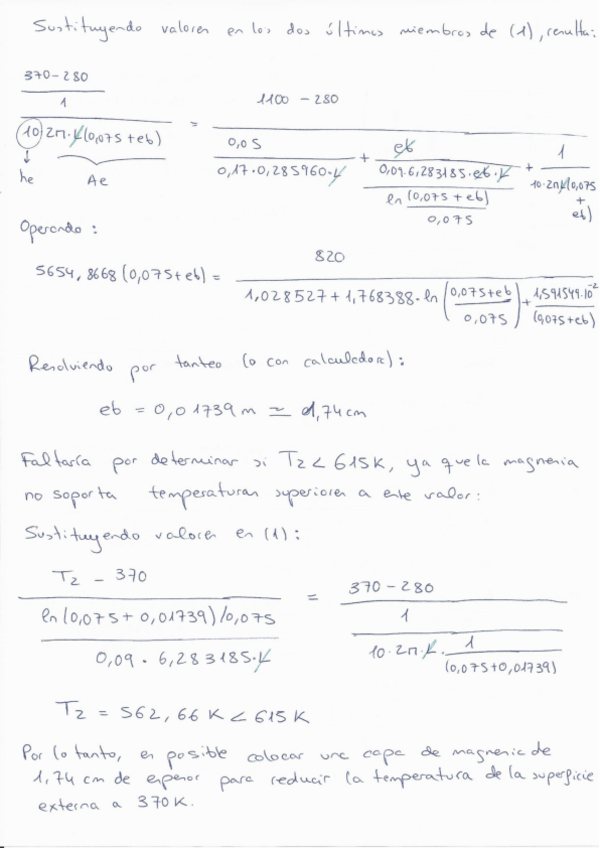 Sustituyendo valores en los dos últimos miembros de (1), resulta:
370-280 / (1 / (10·2π·L(0,075+eb))) = 1100 - 280 / (0,05 / (0,17·0,285960·L) + eb / (0,09·6,283185·eb·L / ln (0,075+eb)/0,075) + 1 / (10·2πL(0,075+eb)))
he Ae
Operando:
5654,8668(0,075+eb) = 820 / (1,028527 + 1,768388·ln((0,075+eb)/0,075) + 1,591549·10^-2 / (0,075+eb))
Resolviendo por tanteo (o con calculadora):
eb = 0,01739 m ≃ 1,74 cm
Faltaría por determinar si T2 < 615K, ya que la magnesia
no soporta temperaturas superiores a este valor:
Sustituyendo valores en (1):
T2 - 370 / (ln(0,075+0,01739)/0,075 / (0,09·6,283185·L)) = 370-280 / (1 / (10·2π·L· 1/(0,075+0,01739)))
T2 = 562,66 K < 615 K
Por lo tanto, es posible colocar una capa de magnesia de
1,74 cm de espesor para reducir la temperatura de la superficie
externa a 370K.